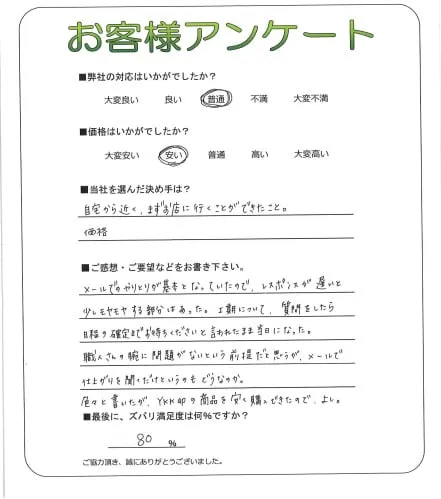 お客様アンケート
■弊社の対応はいかがでしたか?
大変良い 良い 普通 不満 大変不満
■価格はいかがでしたか?
大変安い 安い 普通 高い 大変高い
■当社を選んだ決め手は?
自宅から近く、まずお店に行くことができたこと。
価格
■ご感想・ご要望などをお書き下さい。
メールでのやりとりが基本となっていたので、レスポンスが遅いと
少しモヤモヤする部分はあった。工期について、質問をしたら
日程の確定までお待ちくださいと言われたまま当日になった。
職人さんの腕に問題がないという前提だと思うが、メールで
仕上がりを聞くだけというのもどうなのか。
色々と書いたが、YKK APの商品を安く購入できたので、よし。
■最後に、ズバリ満足度は何%ですか?
80 %
ご協力頂き、誠にありがとうございました。